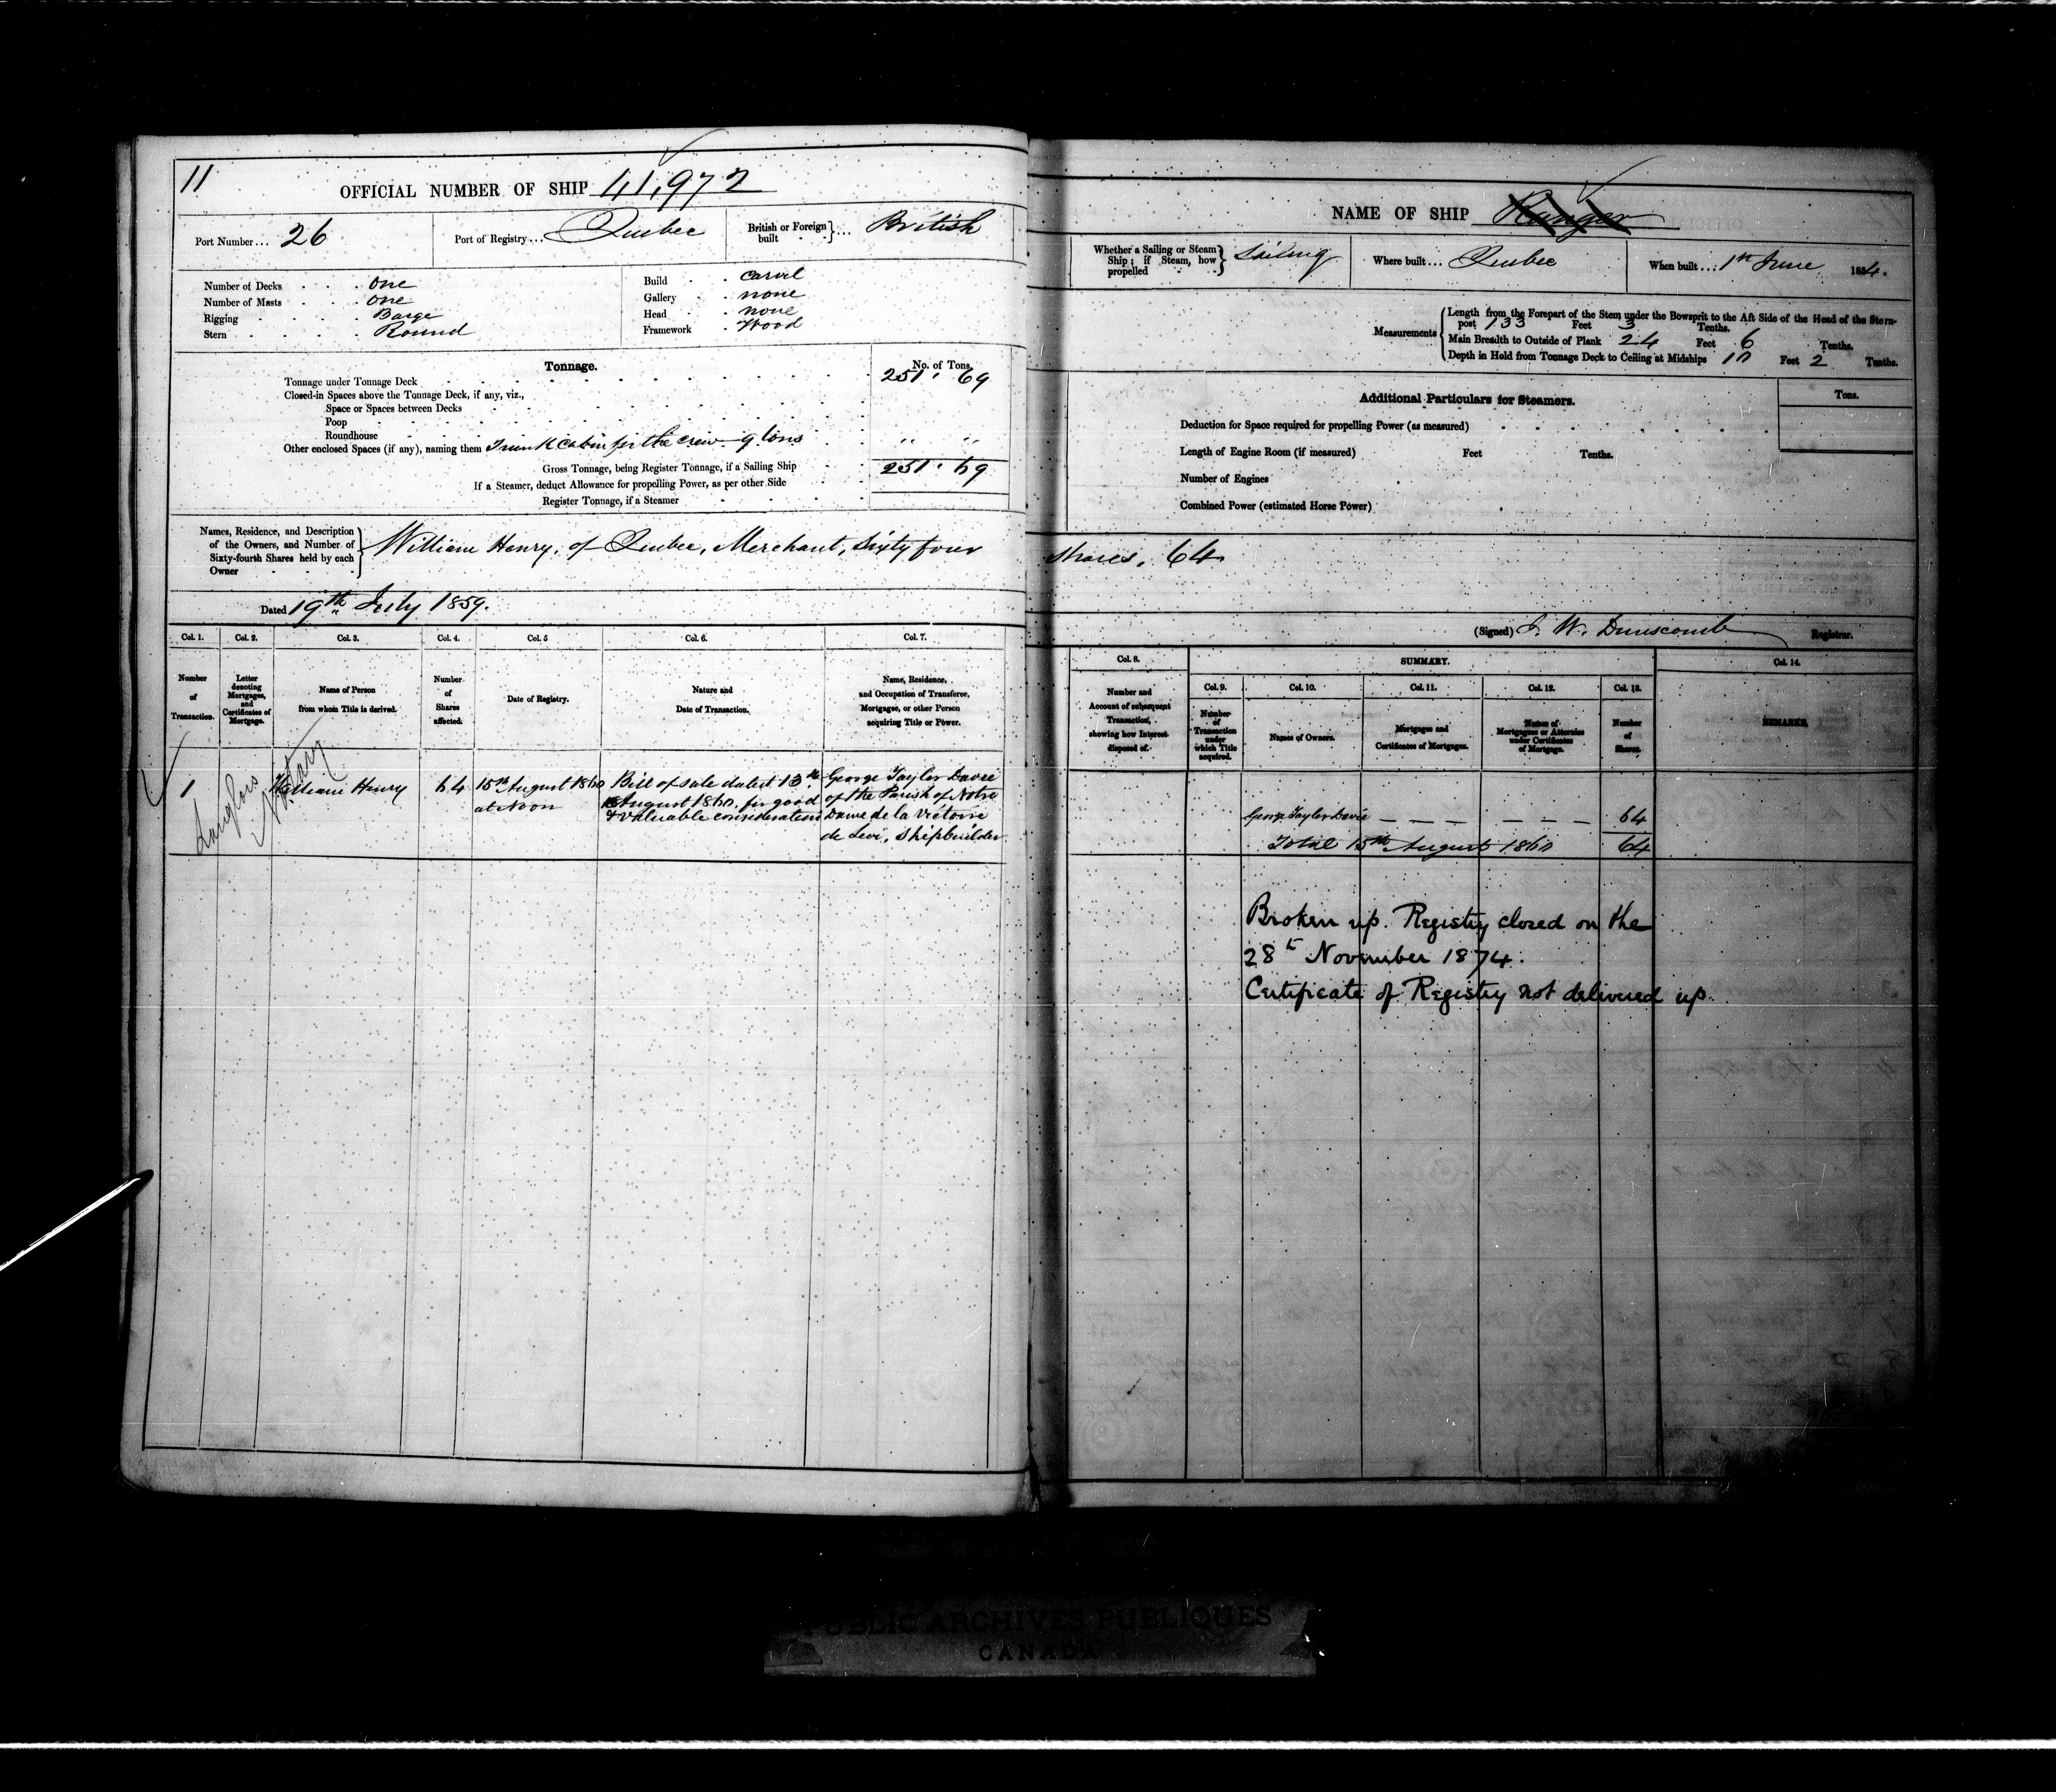 11
OFFICIAL NUMBER OF SHIP 41,972
Port Number... 26
Port of Registry... Quebec
British or Foreign built } ... British
Number of Decks . . . one
Number of Masts . . . one
Rigging . . . . Barge
Stern . . . . . Round
Build . . Carvel
Gallery . . none
Head . . none
Framework . Wood
Tonnage. No. of Tons.
Tonnage under Tonnage Deck 251 . 69
Closed-in Spaces above the Tonnage Deck, if any, viz.,
Space or Spaces between Decks
Poop
Roundhouse
Other enclosed Spaces (if any), naming them Trunk cabin for the crew 9 tons ,, ,,
Gross Tonnage, being Register Tonnage, if a Sailing Ship 251 . 69
If a Steamer, deduct Allowance for propelling Power, as per other Side
Register Tonnage, if a Steamer
Names, Residence, and Description
of the Owners, and Number of
Sixty-fourth Shares held by each
Owner
William Henry, of Quebec, Merchant, Sixty four
Dated 19th July 1859.
Col. 1. Col. 2. Col. 3. Col. 4. Col. 5 Col. 6. Col. 7.
Number of Transaction.
Letter denoting Mortgages, and Certificates of Mortgage.
Name of Person from whom Title is derived.
Number of Shares affected.
Date of Registry.
Nature and Date of Transaction.
Name, Residence, and Occupation of Transferee, Mortgagee, or other Person acquiring Title or Power.
Langlois
Notary
1 William Henry 64
15th August 1860
at Noon
Bill of Sale dated 13th
August 1860, for good
& valuable consideration
George Taylor Davie
of the Parish of Notre
Dame de la Victoire
de Levi, Shipbuilder
NAME OF SHIP Ranger
Whether a Sailing or Steam Ship; if Steam, how propelled } Sailing
Where built... Quebec
When built... 1st June 1854.
Measurements
Length from the Forepart of the Stem under the Bowsprit to the Aft Side of the Head of the Stern-
post 133 Feet 3 Tenths.
Main Breadth to Outside of Plank 24 Feet 6 Tenths.
Depth in Hold from Tonnage Deck to Ceiling at Midships 10 Feet 2 Tenths.
Additional Particulars for Steamers. Tons.
Deduction for Space required for propelling Power (as measured)
Length of Engine Room (if measured) Feet Tenths.
Number of Engines
Combined Power (estimated Horse Power)
Shares. 64
(Signed) J. W. Dunscomb Registrar.
Col. 8. SUMMARY. Col. 14.
Col. 9. Col. 10. Col. 11. Col. 12. Col. 13.
Number and Account of subsequent Transaction, showing how Interest disposed of.
Number of Transaction under which Title acquired.
Names of Owners.
Mortgages and Certificates of Mortgages.
Names of Mortgagees or Attornies under Certificates of Mortgage.
Number of Shares.
REMARKS.
George Taylor Davie — — — — — — 64
Total 15th August 1860 64
Broken up. Registry closed on the
28th November 1874.
Certificate of Registry not delivered up.
PUBLIC ARCHIVES PUBLIQUES
CANADA